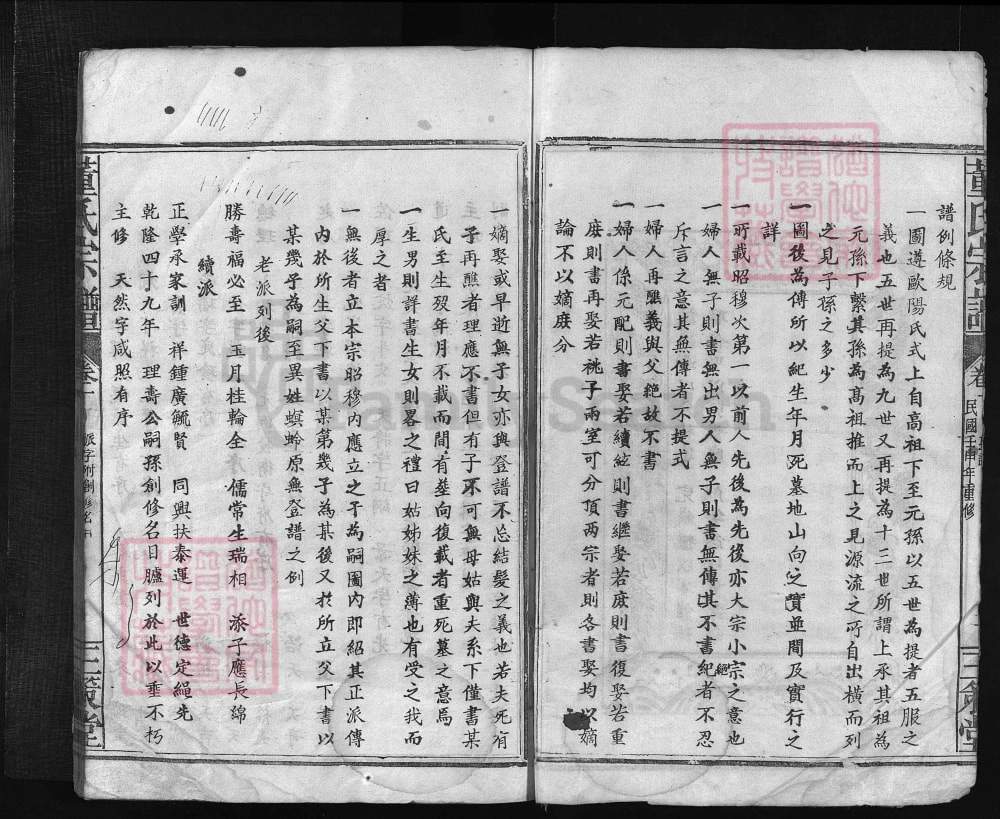 譜例條規
一圖遵歐陽氏式上自高祖下至元孫以五世為提者五服之
義也五世再提為九世又再提為十三世所謂上承其祖為
元孫下繫其孫為高祖推而上之見源流之所自出橫而列
之見子孫之多少
一圖後為傳所以紀生年月死墓地山向之實並間及實行之
詳
一所載昭穆次第一以前人先後為先後亦大宗小宗之意也
一婦人無子則書無出男人無子則書無傳其不書絕紀者不忍
斥言之意其無傳者不提式
一婦人再醮義與父絕故不書
一婦人係元配則書娶若續絃則書繼娶若庶則書復娶若重
庶則書再娶若祧子兩室可分頂兩宗者則各書娶均以嫡
論不以嫡庶分
嫡娶或早逝無子女亦與登譜不忘結髮之義也若夫死有
子再醮者理應不書但有子不可無母姑與夫系下僅書某
氏至生歿年月不載而間有塟向復載者重死墓之意焉
一生男則詳書生女則畧之禮曰姑姊妹之薄也有受之我而
厚之者
一無後者立本宗昭穆內應立之子為嗣圖內即紹其正派傳
內於所生父下書以某第幾子為某後又於所立父下書以
某幾子為嗣至異姓螟蛉原無登譜之例
老派列後
勝壽福必至 玉月桂輪全 儒常生瑞相 添子應長綿
續派
正學承家訓 祥鍾廣毓賢 同興扶泰運 世德定繩先
乾隆四十九年 理壽公嗣孫創修名目臚列於此以垂不朽
主修 天然字咸照有序
董氏宗譜
卷一
派字附創修名目
三策堂
董氏宗譜
民國壬申年重修
三策堂